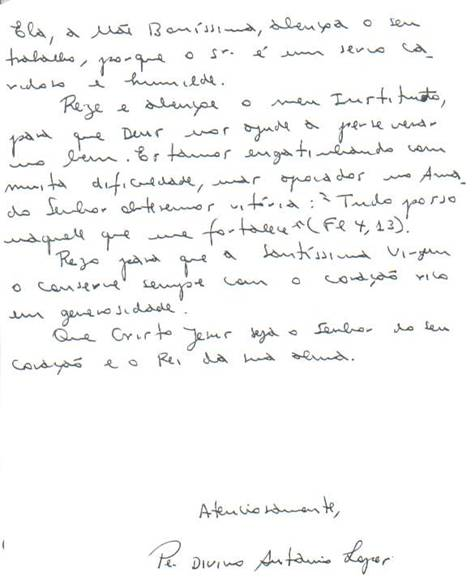 Ela, a Mãe Boníssima, abençoa o seu
trabalho, porque o sr. é um servo ca-
ridoso e humilde.
Reze e abençoe o meu Instituto,
para que Deus nos ajude a perseverar
no bem. Estamos engatinhando com
muita dificuldade, mas apoiados no Amor
do Senhor obteremos vitória: "Tudo posso
naquele que me fortalece" (Fl 4,13).
Rezo para que a Santíssima Virgem
o conserve sempre com o coração rico
em generosidade.
Que Cristo Jesus seja o Senhor do seu
coração e o Rei da sua alma.
Atenciosamente,
Pe. Divino Antônio Lopes